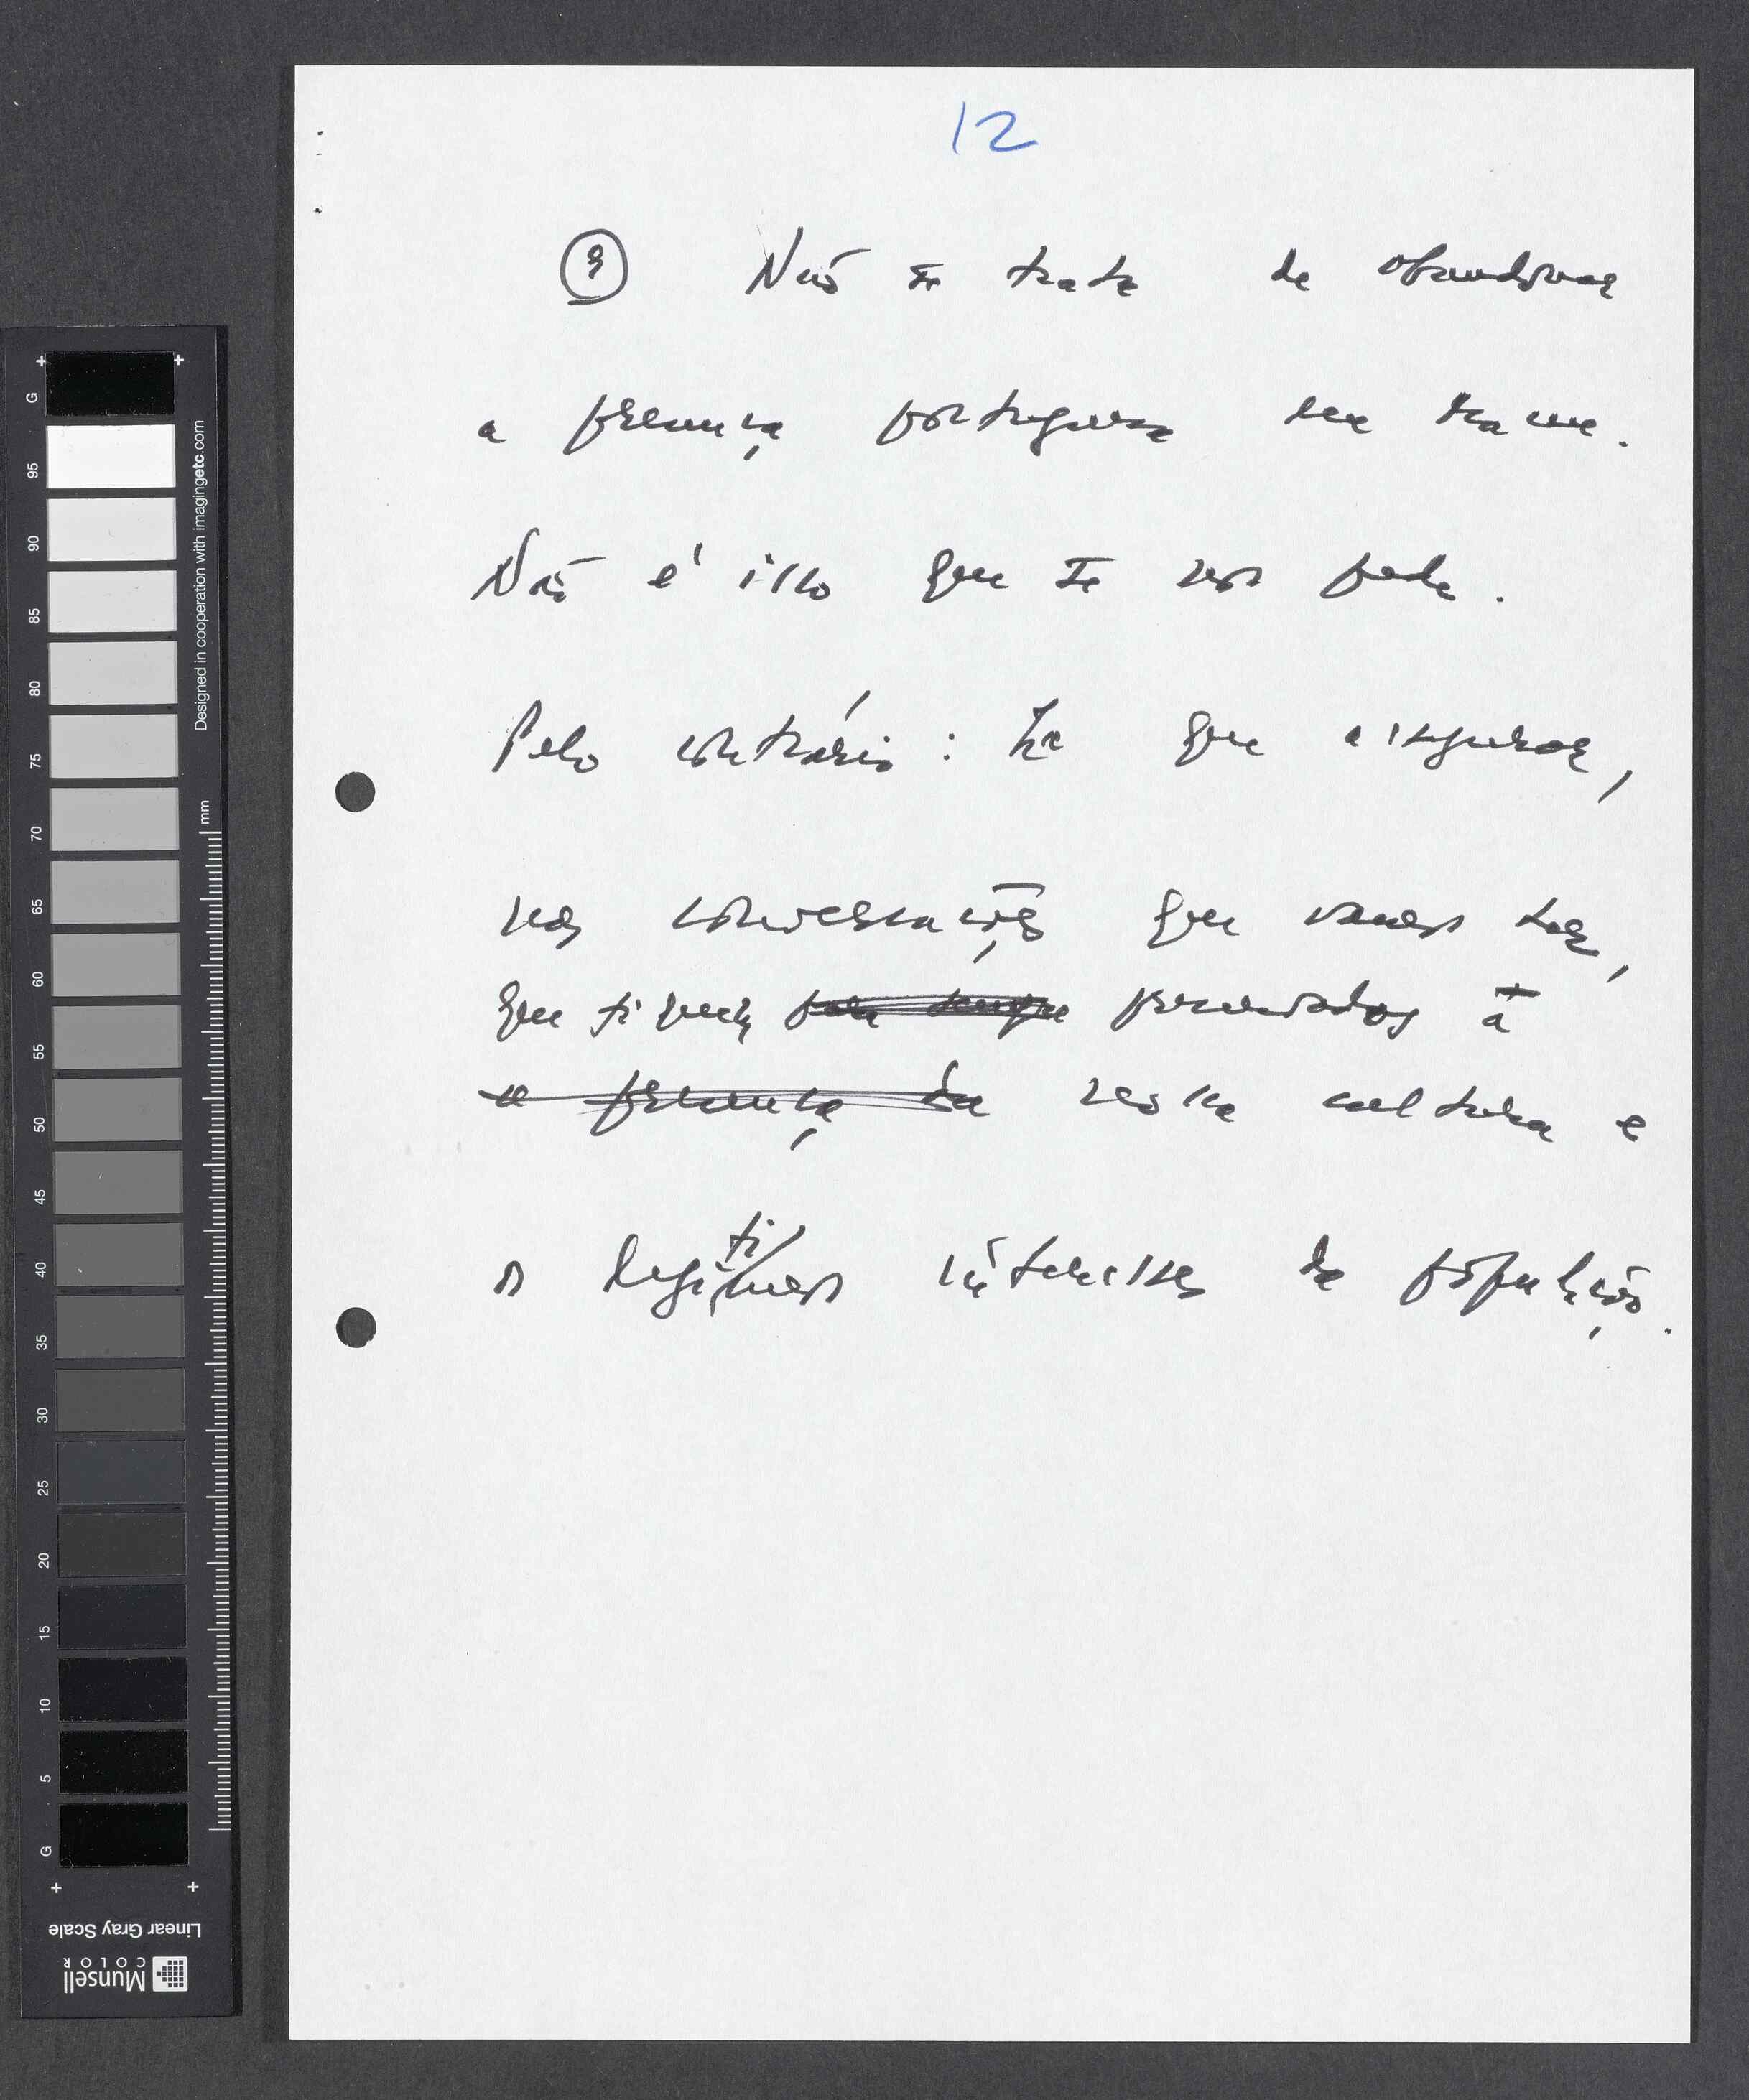 12
③ Não se trata de abandonar
a presença portuguesa em Macau.
Não é isso que se nos pede.
Pelo contrário: há que assegurar,
nas conversações que vamos ter,
que fiquem preservados a
a presença da nossa cultura e
os legítimos interesses da população.
G
95
90
85
80
75
70
65
60
55
50
45
40
35
30
25
20
15
10
5
G
mm
Designed in cooperation with imagingetc.com
Linear Gray Scale
Munsell
COLOR